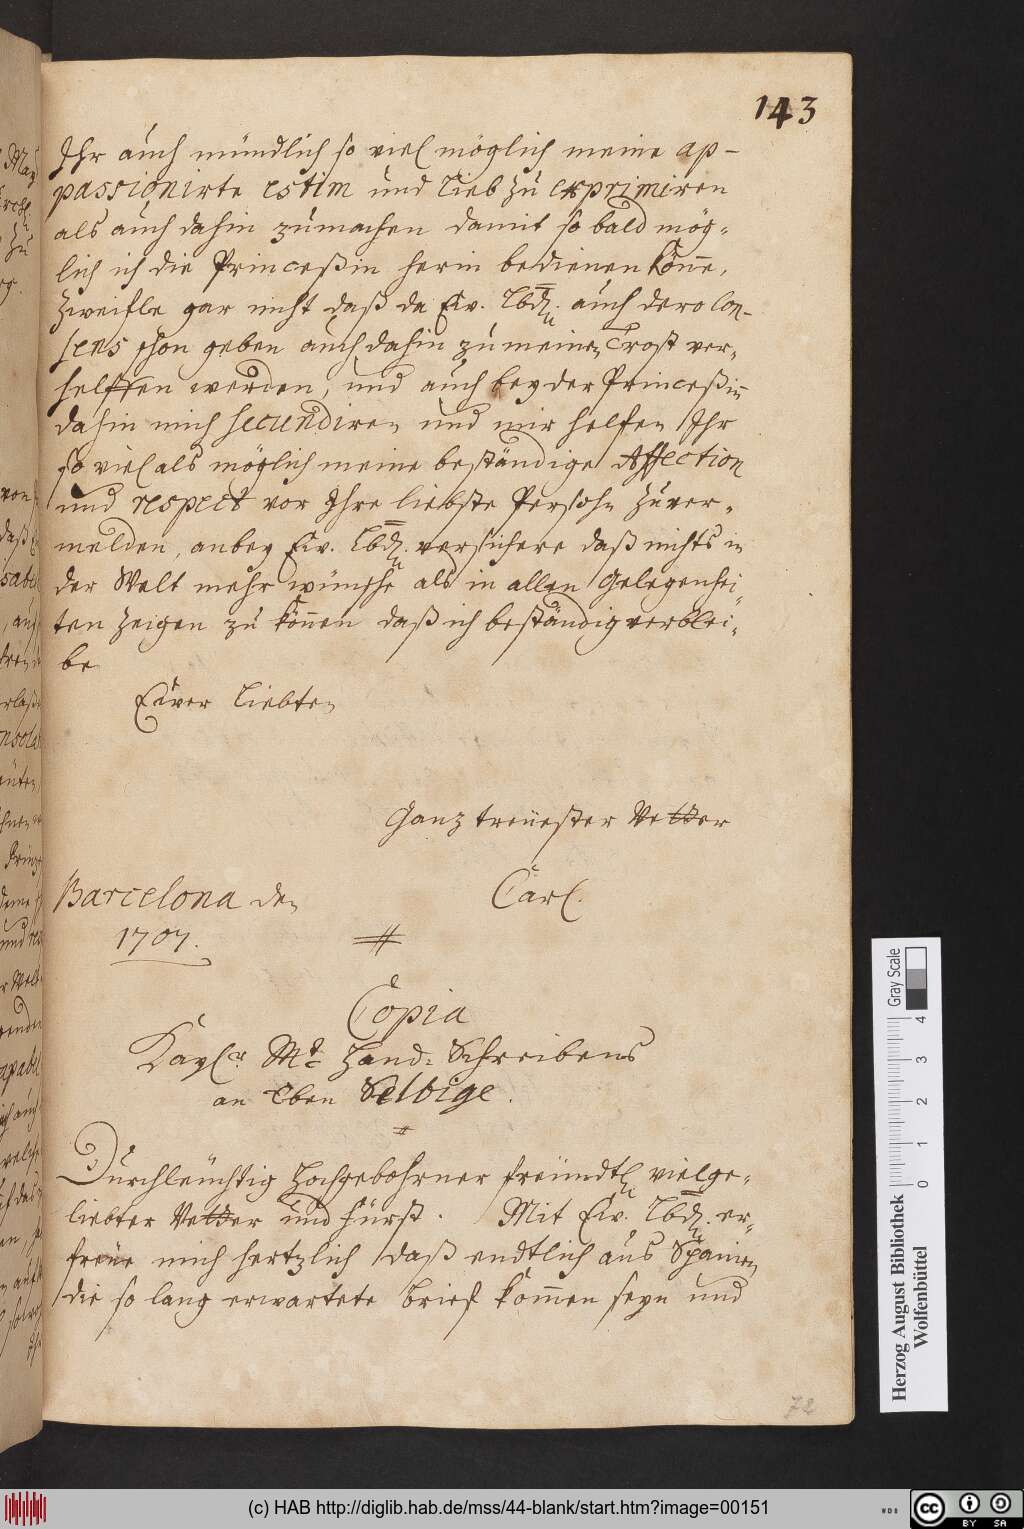 143
Ihr auch mündlich so viel möglich meine ap-
passionirte estim und Lieb zu exprimiren
als auch dahin zumachen damit so bald mög-
lich ich die Princeßin herin bedienen könne,
zweifle gar nicht daß da Ew. Lbd. auch dero Con-
sens schon geben auch dahin zu meinen Trost ver-
helffen werden, und auch bey der Princeßin
dahin mich secundiren und mir helfen Ihr
so viel als möglich meine beständige Affection
und respect vor Ihre liebste Persohn zu ver-
melden, anbey Ew. Lbd. versichere daß nichts in
der Welt mehr wünsche als in allen Gelegenhei-
ten zeigen zu können daß ich beständig verblei-
be
Euer Liebten
Ganz treüester Vetter
Barcelona den
Carl.
1707.
Copia
Kayl.r Mt. Hand-Schreibens
an Eben Selbige.
Durchleüchtig Hochgebohrner freündtl. vielge-
liebter Vetter und Fürst. Mit Ew. Lbd. er-
freüe mich hertzlich daß endtlich aus Spanien
die so lang erwartete brief kommen seyn und
72
Herzog August Bibliothek
Wolfenbüttel
0 1 2 3 4
Gray Scale
(c) HAB http://diglib.hab.de/mss/44-blank/start.htm?image=00151
WDB
cc BY SA